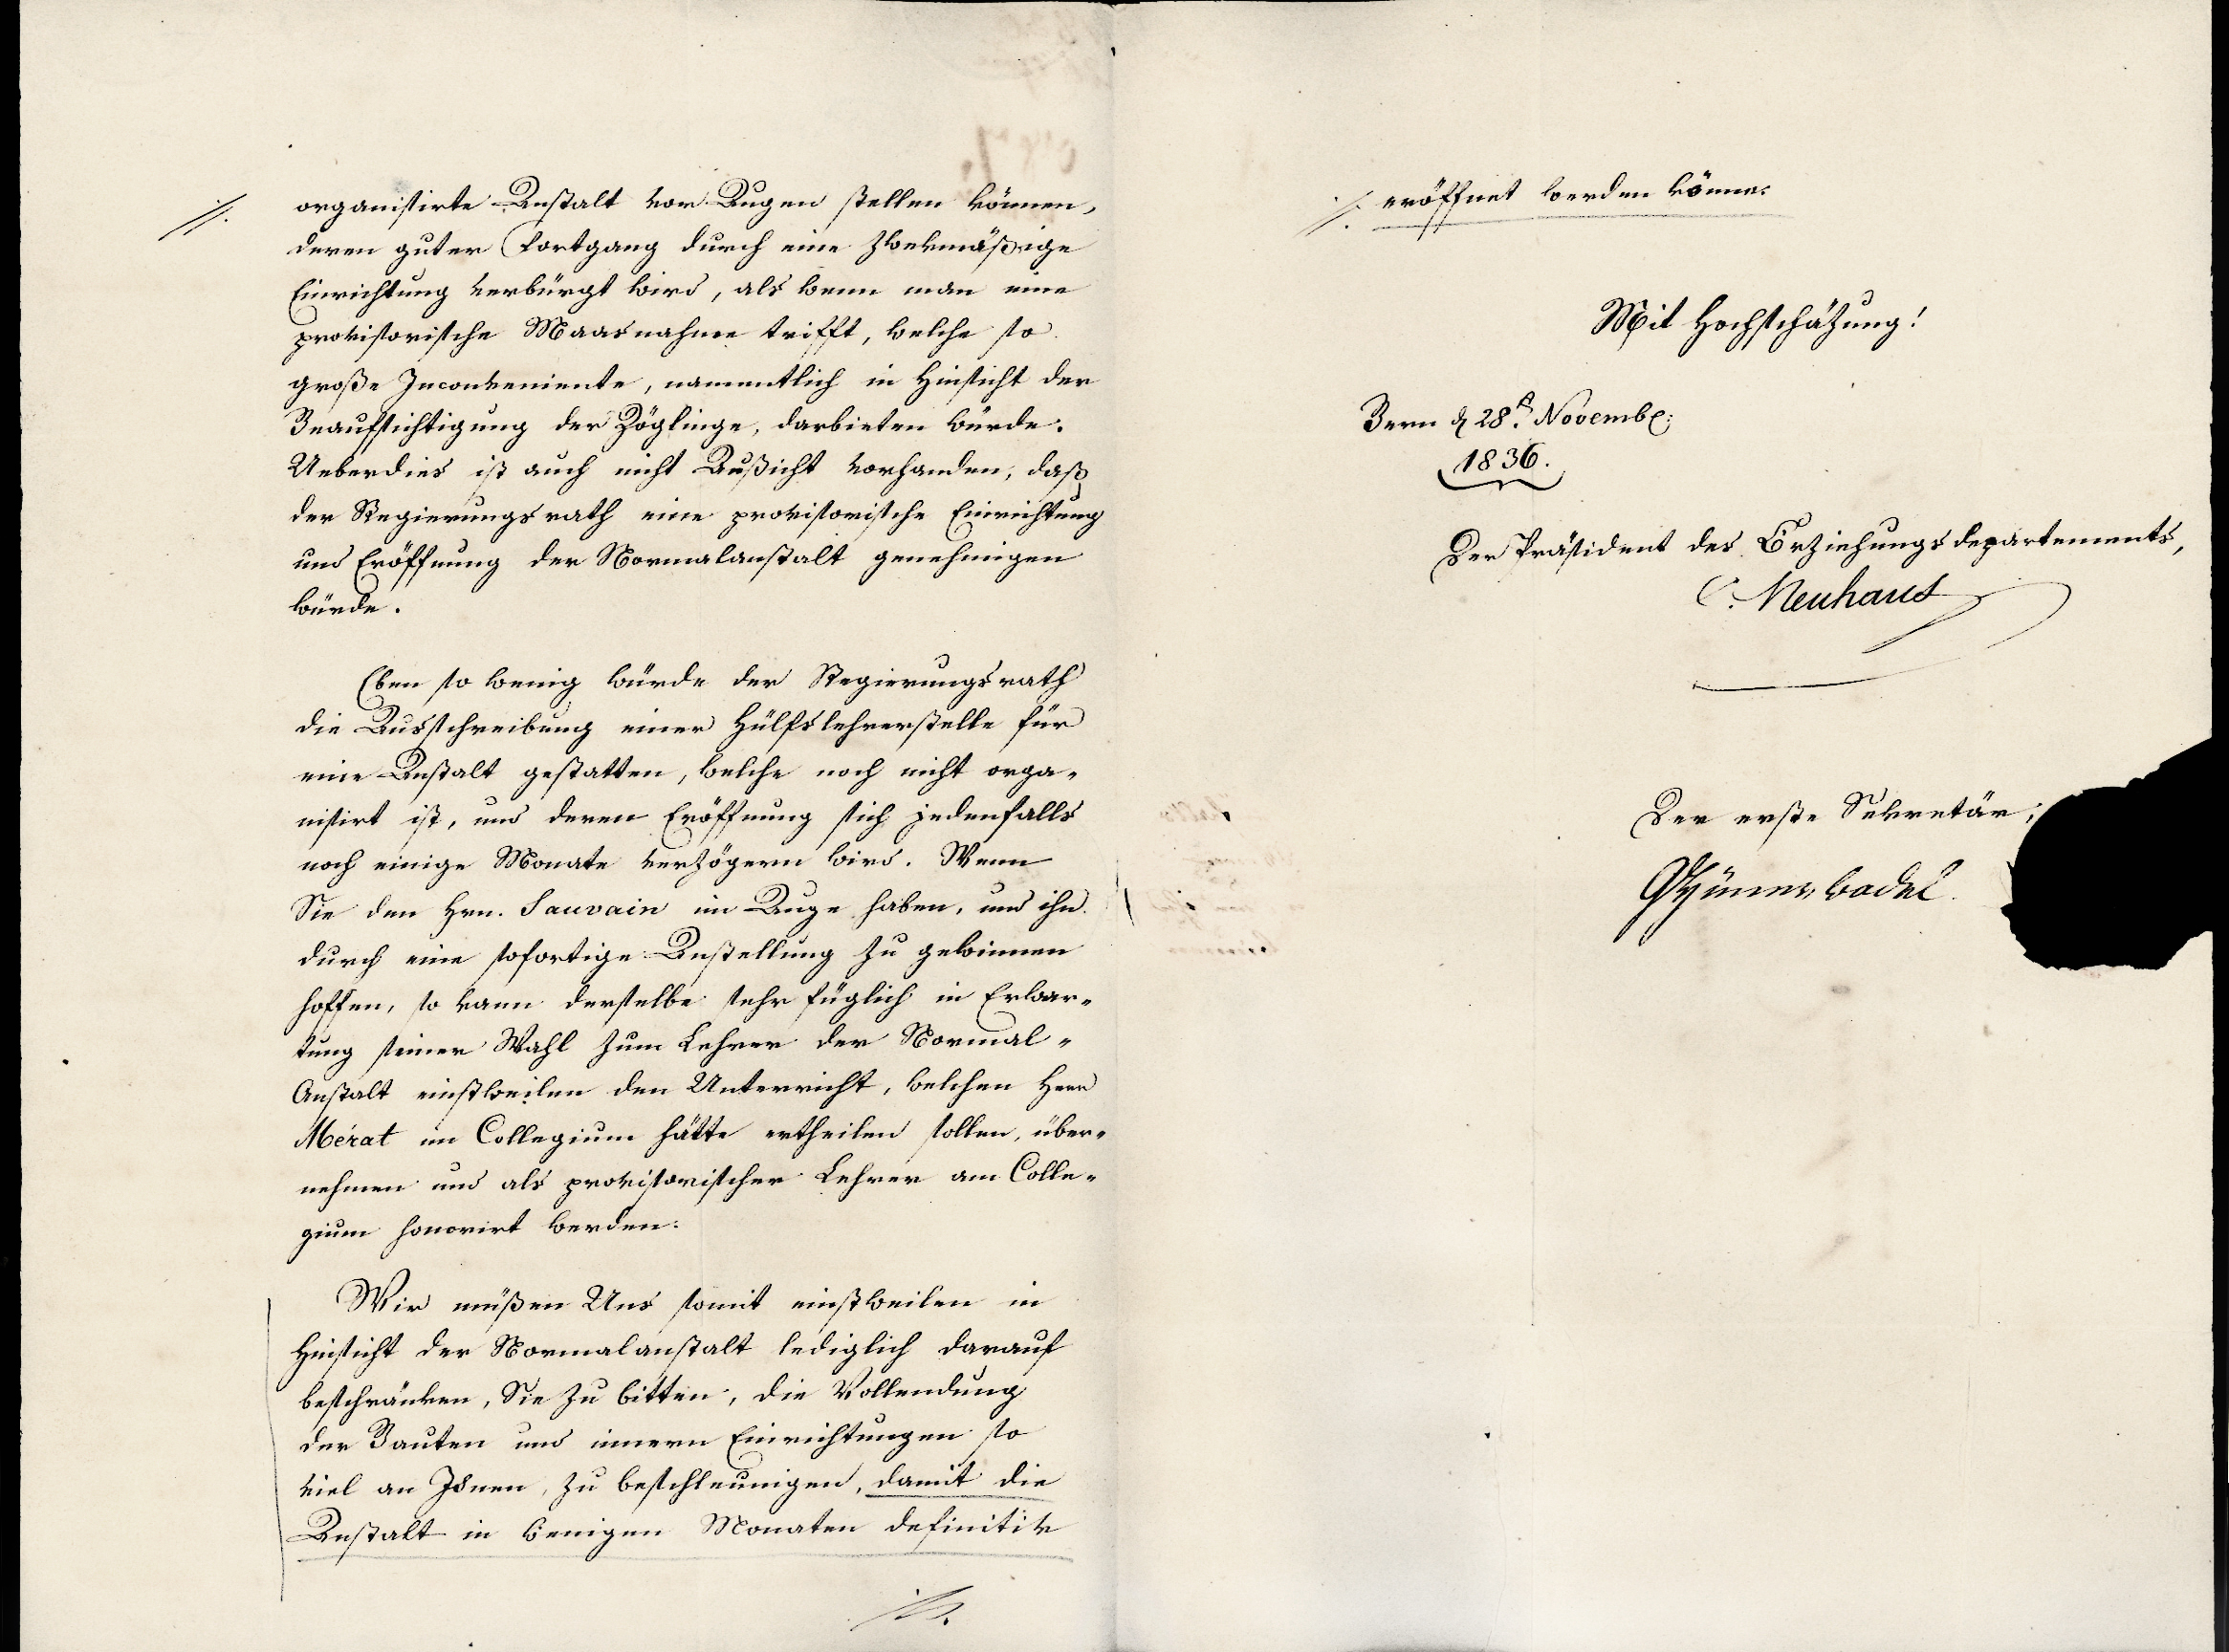 organisirte Anstalt vor Augen stellen können,
deren guter Fortgang durch eine zwekmäßige
Einrichtung verbürgt wird, als wenn man eine
provisorische Maasnahme trifft, welche so
große Inconveniente, namentlich in Hinsicht der
Beaufsichtigung der Zöglinge, darbieten würde.
Ueberdies ist auch nicht Außicht vorhanden, daß
der Regierungsrath eine provisorische Einrichtung
und Eröffnung der Normalanstalt genehmigen
würde.
Eben so wenig würde der Regierungsrath
die Ausschreibung einer Hülfslehrerstelle für
eine Anstalt gestatten, welche noch nicht orga-
nisirt ist, und deren Eröffnung sich jedenfalls
noch einige Monate verzögern wird. Wenn
Sie den Hrn. Sauvain im Auge haben, und ihn
durch eine sofortige Anstellung zu gewinnen
hoffen, so kann derselbe sehr füglich in Erwar-
tung seiner Wahl zum Lehrer der Normal-
Anstalt einstweilen den Unterricht, welchen Herr
Mérat im Collegium hätte ertheilen sollen, über-
nehmen und als provisorischer Lehrer am Colle-
gium honorirt werden.
Wir müßen Uns somit einstweilen in
Hinsicht der Normalanstalt lediglich darauf
beschränken, Sie zu bitten, die Vollendung
der Bauten und innern Einrichtungen so
viel an Ihnen, zu beschleunigen, damit die
Anstalt in wenigen Monaten definitiv
./.
./. eröffnet werden könne.
Mit Hochschäzung!
Bern d. 28t. Novembr.
1836.
Der Präsident des Erziehungsdepartements,
C. Neuhaus
Der erste Sekretär;